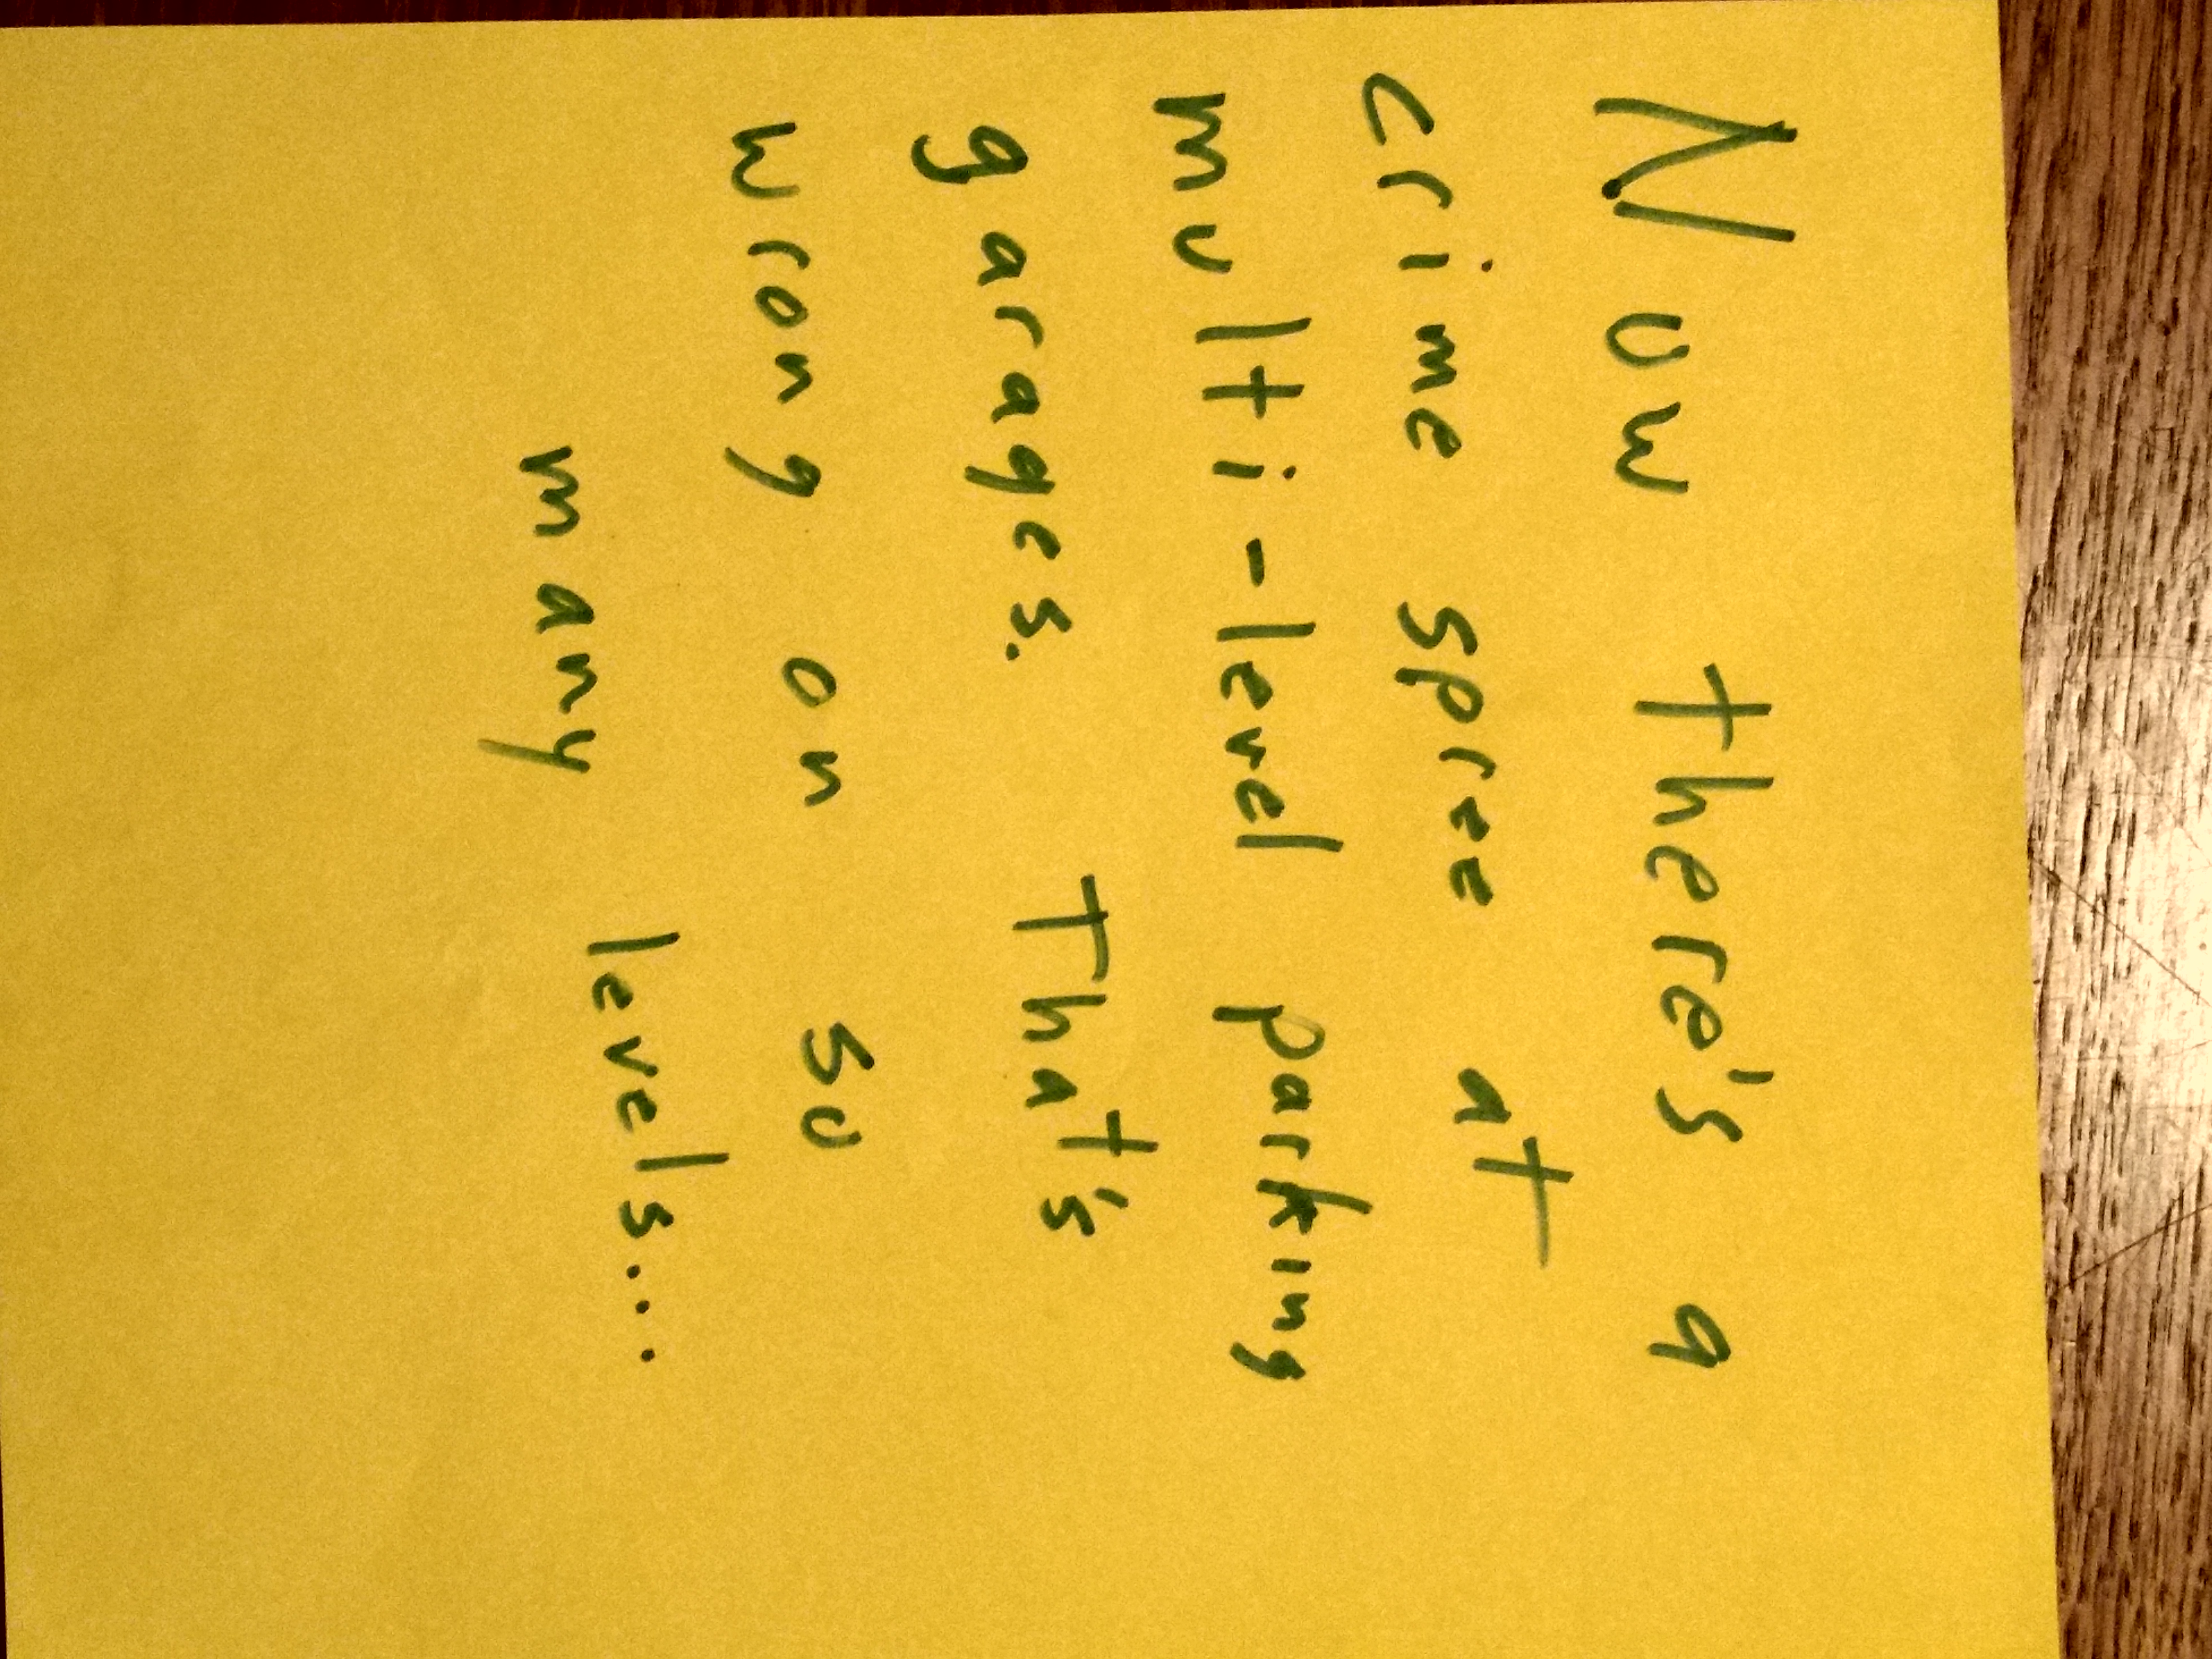 Now there's a
crime spree at
multi-level parking
garages. That's
wrong on so
many levels...